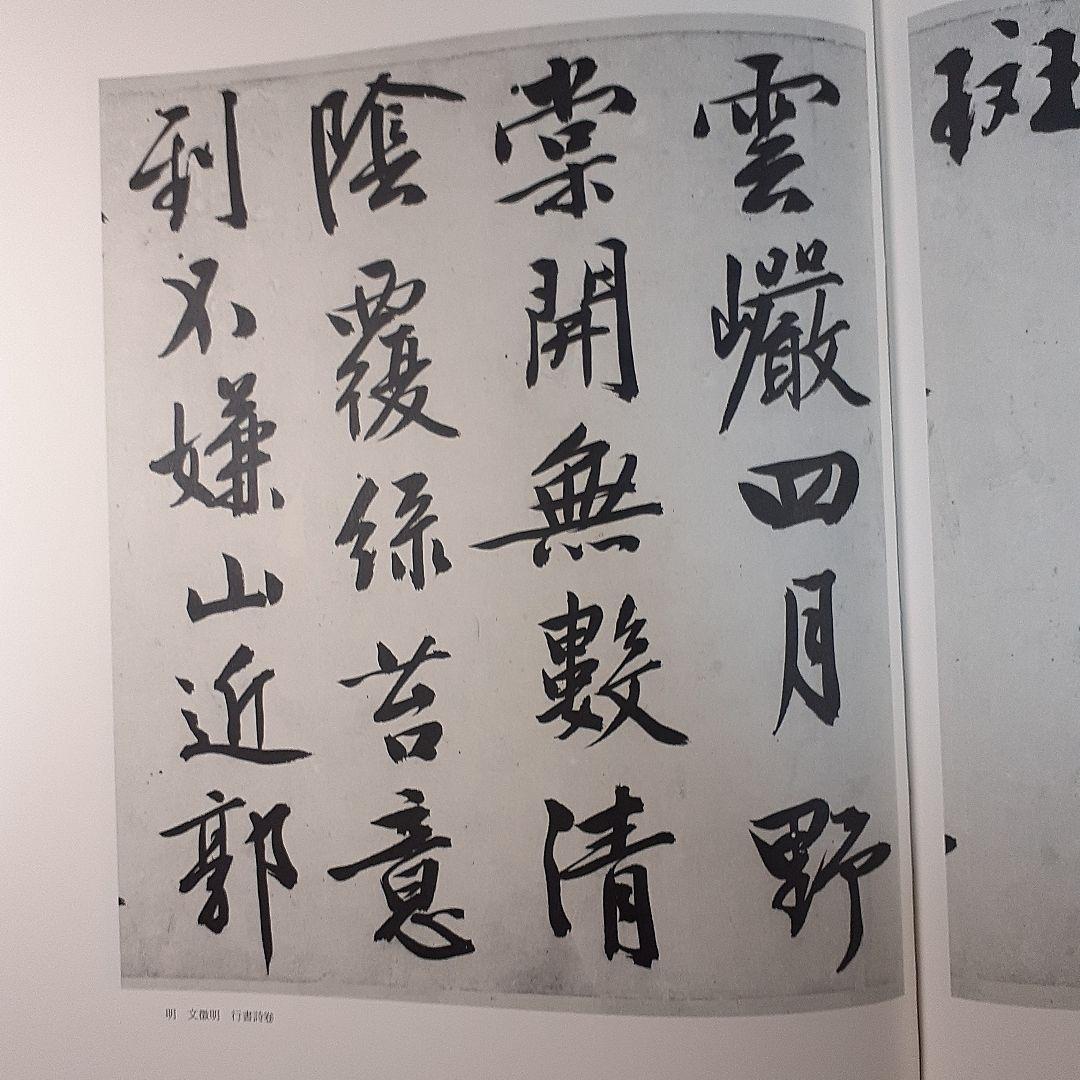 斑
雲巖四月野
棠開無數清
陰覆綠苔意
到不嫌山近郭
明　文徵明　行書詩卷